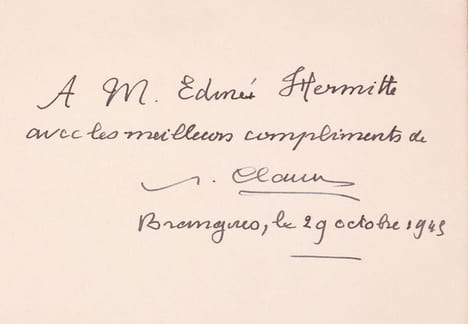 A M. Edmée Hermitte
avec les meilleurs compliments de
P. Claudel
Brangues, le 29 octobre 1945